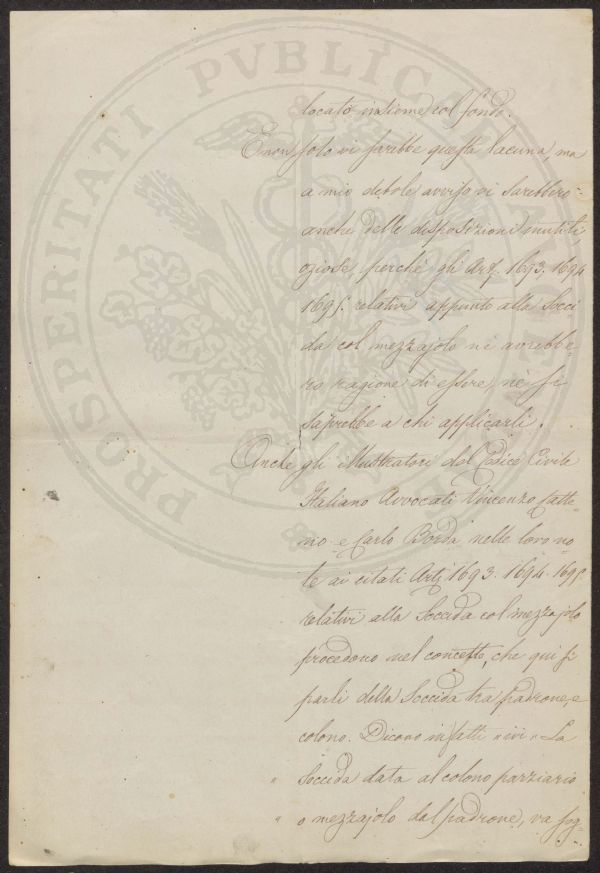 PROSPERITATI PVBLICAE AVGEN
locato insieme col fondo.
E non solo vi sarebbe questa lacuna, ma
a mio debole avviso vi sarebbero
anche delle disposizioni inutili,
oziose, perchè gli Art. 1693. 1694
1695. relativi appunto alla Socci=
da col mezzajolo nè avrebbe=
ro ragione di essere, nè si
saprebbe a chi applicarli.
Anche gli Illustratori del Codice Civile
Italiano Avvocati Vincenzo Catte=
no e Carlo Borda nelle loro no=
te ai citati Artj 1693. 1694. 1695
relativi alla Soccida col mezzajolo
procedono nel concetto, che qui si
parli della Soccida tra padrone, e
colono. Dicono infatti ivi " La
" Soccida data al colono parziario
" o mezzajolo dal padrone, va sog=